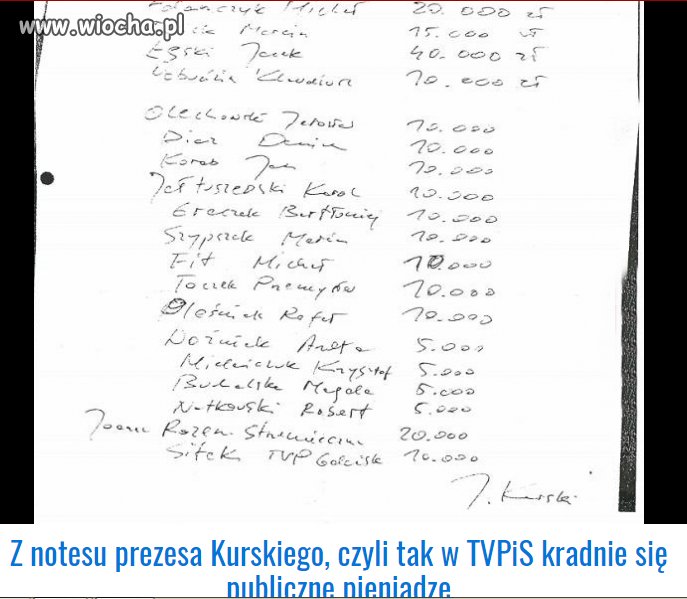 Michał 20.000 zł
www.wiocha.pl
Marcin 15.000 zł
Łęski Jacek 40.000 zł
Klaudiusz 10.000 zł
Olechowski Jarosław 10.000
Diaz Damian 10.000
Korab Jan 10.000
Jałtuszewski Karol 10.000
Graczak Bartłomiej 10.000
Szypszak Marcin 10.000
Fit Michał 10.000
Toczek Przemysław 10.000
Oleśniek Rafał 10.000
Woźniek Aneta 5.000
Mielniczuk Krzysztof 5.000
Buchalska Magda 5.000
Natkowski Robert 5.000
Joanna 20.000
Sitek TVP Gdańsk 10.000
J. Kurski
Z notesu prezesa Kurskiego, czyli tak w TVPiS kradnie się
publiczne pieniądze